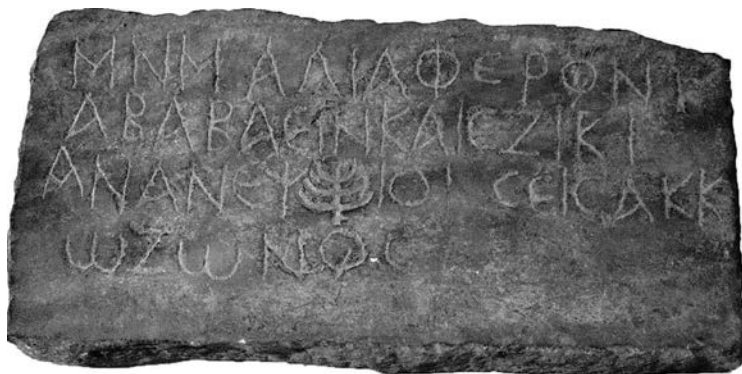 ΜΝΜΑΔΙΑΦΕΡΟΝΤ
ΑΒΑΒΑΕΙΝΙΚΑΙΕΖΙΚΙ
ΑΝΑΝΕΨ ΙΟΙ CΕΙCΑΚΚ
ωΖωΝΟC